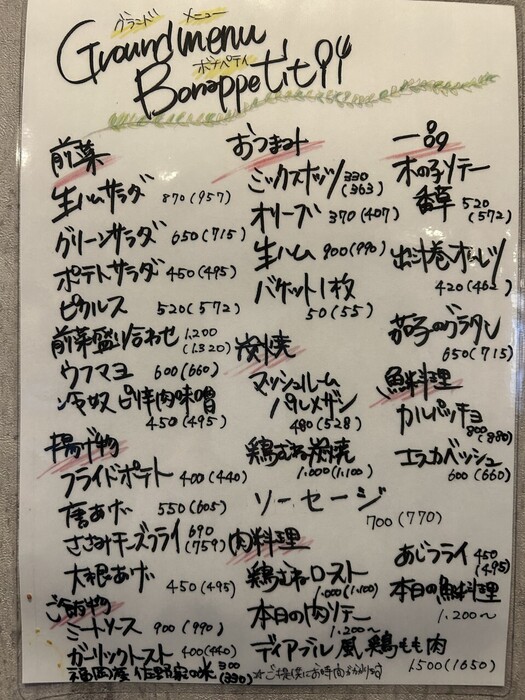 グランド メニュー
Grandmenu
ボナペティ
Bonappetit!!
前菜
生ハムサラダ 870(957)
グリーンサラダ 650(715)
ポテトサラダ 450(495)
ピクルス 520(572)
前菜盛り合わせ 1,200(1,320)
ウフマヨ 600(660)
冷奴 ピリ辛肉味噌
450(495)
揚げ物
フライドポテト 400(440)
唐あげ 550(605)
ささみチーズフライ 690(759)
大根あげ 450(495)
ご飯物
ミートソース 900(990)
ガーリックトースト 400(440)
福岡産 佐野家の米 300(330)
おつまみ
ミックスナッツ 330(363)
オリーブ 370(407)
生ハム 900(990)
バケット1枚
50(55)
炭焼
マッシュルーム
パルメザン
480(528)
鶏むね炭焼
1,000(1,100)
ソーセージ
700(770)
肉料理
鶏むねロースト
1,000(1,100)
本日の肉ソテー
1,200〜
ディアブル風 鶏もも肉
1500(1650)
※ご提供にお時間かかります
一品
木の子ソテー
香草 520(572)
出汁巻オムレツ
420(462
茄子のグラタン
650(715)
魚料理
カルパッチョ
800(880)
エスカベッシュ
600(660)
あじフライ 450(495)
本日の魚料理
1,200〜